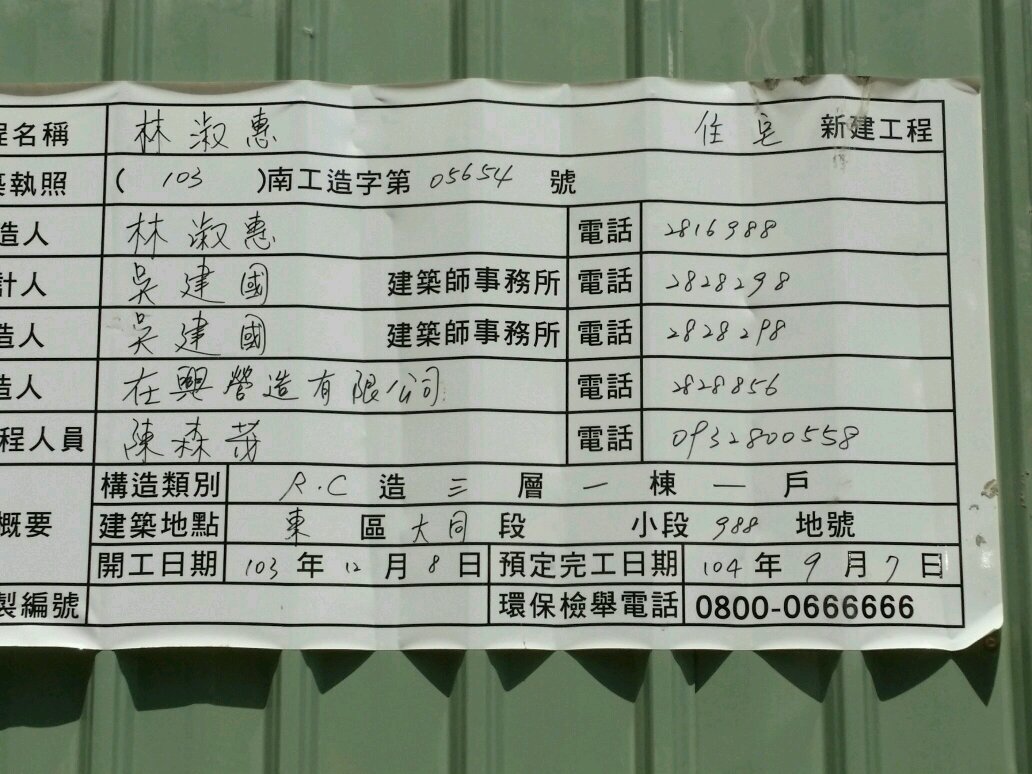 程名稱 林淑惠 住宅 新建工程
築執照 ( 103 )南工造字第 05654 號
造人 林淑惠 電話 2816988
計人 吳建國 建築師事務所 電話 2828298
造人 吳建國 建築師事務所 電話 2828298
造人 在興營造有限公司 電話 2828856
程人員 陳森茂 電話 0932800558
構造類別 R.C 造 三 層 一 棟 一 戶
概要 建築地點 東 區 大同 段 小段 988 地號
開工日期 103 年 12 月 8 日 預定完工日期 104 年 9 月 7 日
製編號 環保檢舉電話 0800-0666666